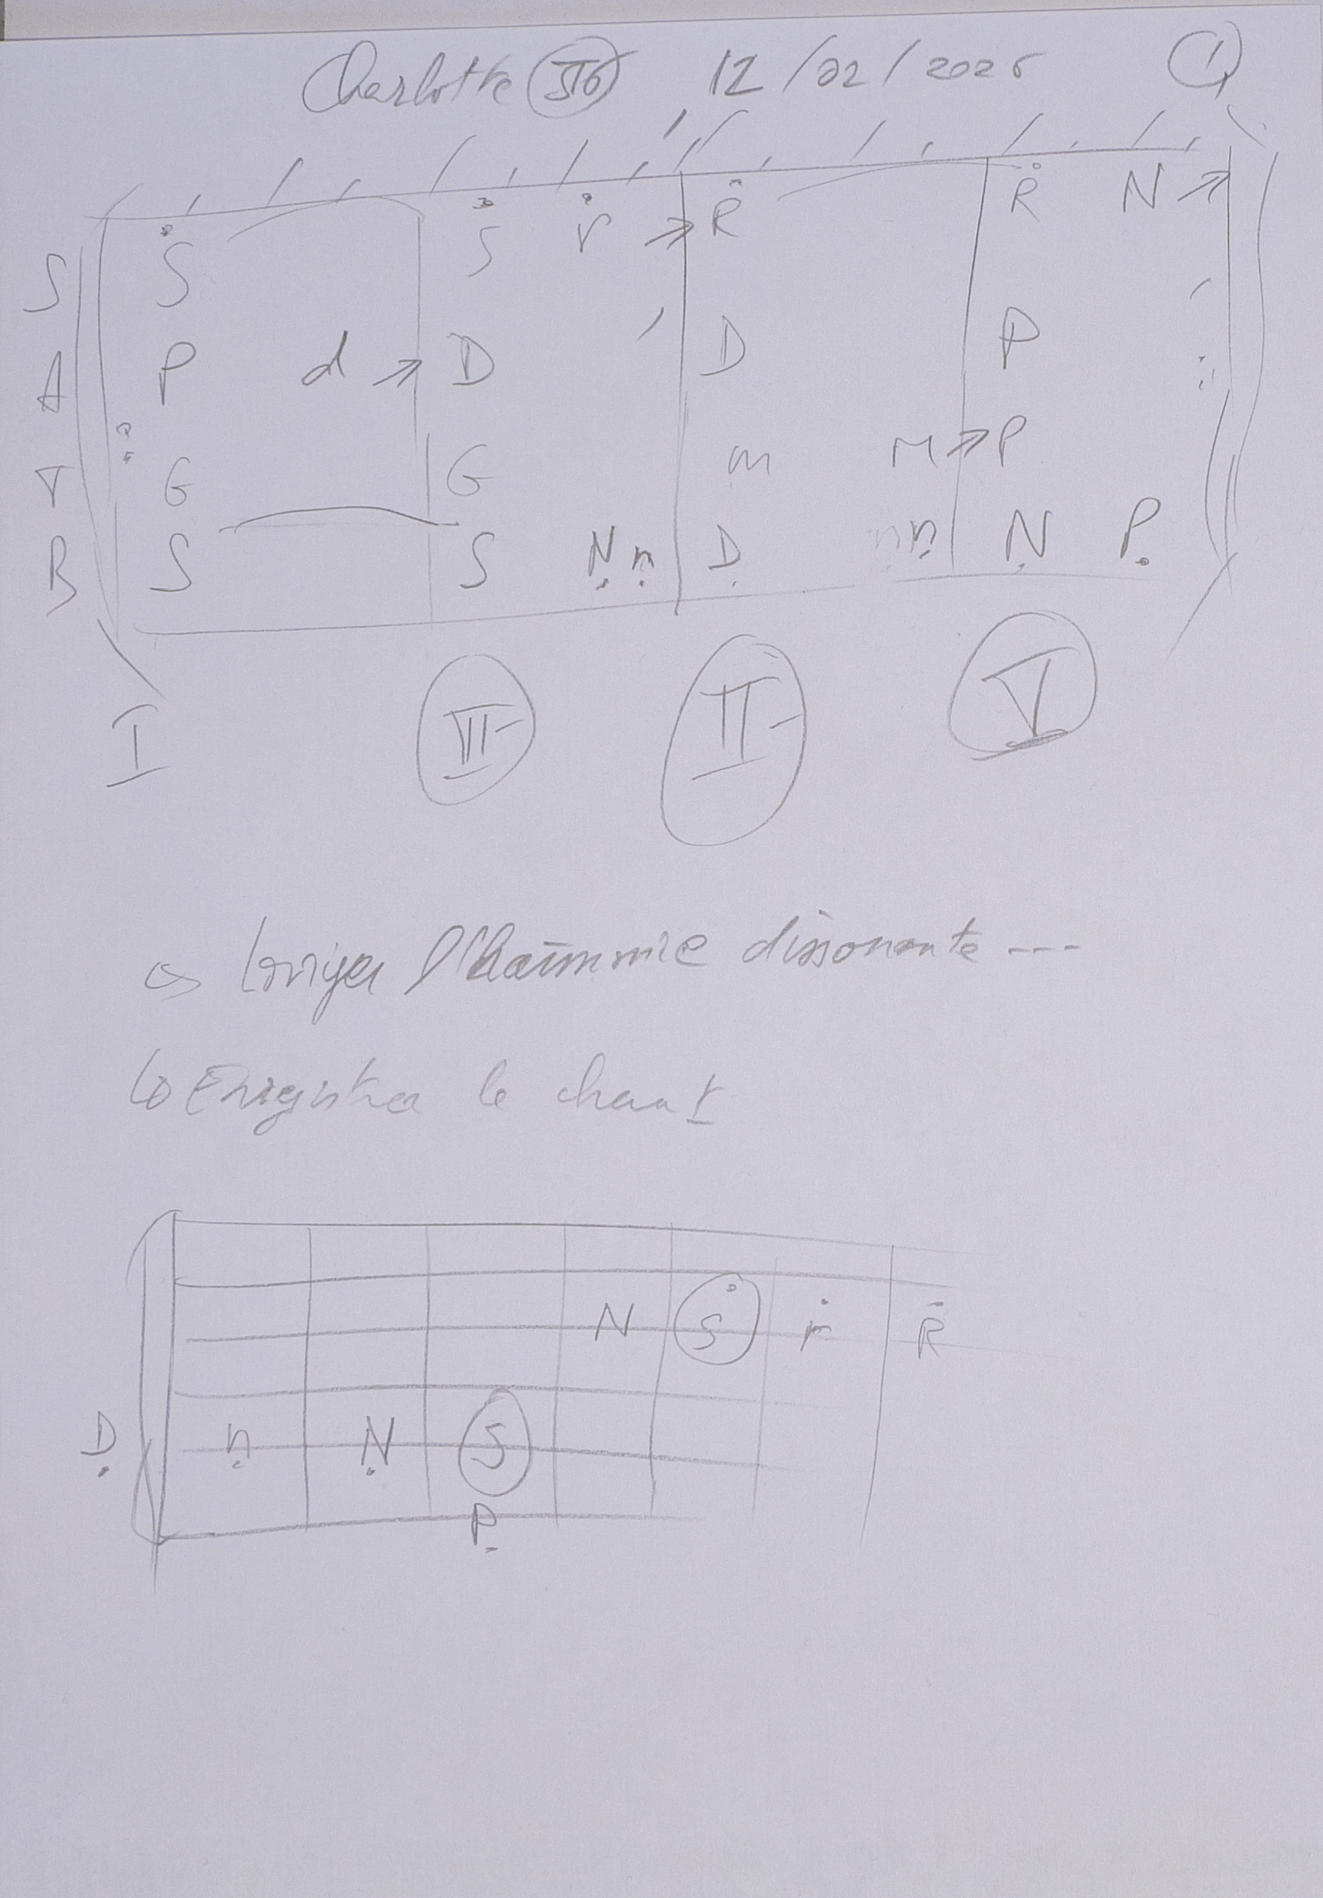 Charlotte 12/02/2026 1
S Ṡ Ṡ ṙ → Ṙ Ṙ N →
A P d → D D P
T G G m m → P
B S S Ṇ ṇ Ḍ n ṇ Ṇ P̣
I II V
l'harmonie dissonante ---
↳ Enregistrer le chant
N Ṡ ṙ Ṙ
Ḍ ṇ Ṇ S
P̣